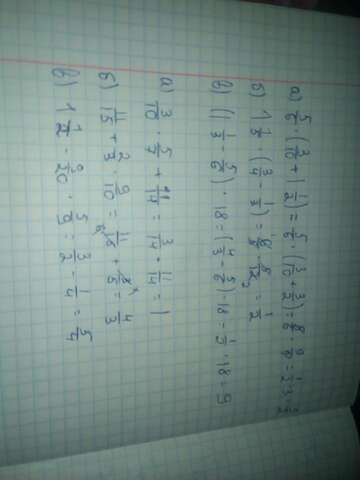 а) 5/6 · (3/10 + 1 1/2) = 5/6 · (3/10 + 3/2) =
б) 1 1/5 · (3/4 - 1/3) = 6/5 · 5/12 = 1/2
в) (1 1/3 - 5/6) · 18 = (4/3 - 5/6) · 18 = 1/2 · 18 = 9
а) 3/10 · 5/7 + 11/14 = 3/14 + 11/14 = 1
б) 11/15 + 2/3 · 9/10 = 11/15 + 3/5 = 4/3
в) 1 1/2 - 9/20 · 5/9 = 3/2 - 1/4 = 5/4